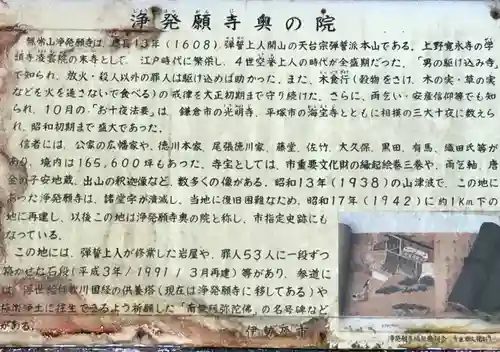 浄発願寺奥の院
無常山浄発願寺は、慶長13年(1608)弾誓上人開山の天台宗弾誓派本山である。上野寛永寺の学
頭寺凌雲院の末寺として、江戸時代に繁栄し、4世空誉上人の時代が全盛期だった。「男の駆け込み寺」
で知られ、放火・殺人以外の罪人は駆け込めば助かった。また、木食行(穀物をさけ、木の実・草の実
などを火を通さないで食べる)の戒律を大正初期まで守り続けた。さらに、雨乞い・安産信仰等でも知
られ、10月の「お十夜法要」は、鎌倉市の光明寺、平塚市の海宝寺とともに相模の三大十夜に数えら
れ、昭和初期まで盛大であった。
信者には、公家の広幡家や、徳川本家、尾張徳川家、藤堂、佐竹、大久保、黒田、有馬、織田氏等が
あり、境内は165,600坪もあった。寺宝としては、市重要文化財の縁起絵巻三巻や、雨乞軸、唐
金の子安地蔵、出山の釈迦像など、数多くの像がある。昭和13年(1938)の山津波で、この地に
あった浄発願寺は、諸堂宇が潰滅し、当地に復旧困難なため、昭和17年(1942)に約1Km下の
地に再建し、以後この地は浄発願寺奥の院と称し、市指定史跡にも
なっている。
この地には、弾誓上人が修業した岩屋や、罪人53人に一段ずつ
築かせた石段(平成3年/1991/3月再建)等があり、参道に
は、浮世絵師歌川国経の供養塔(現在は浄発願寺に移してある)や
極楽浄土に往生できるよう祈願した「南無阿弥陀佛」の名号碑など
がある。
伊勢原市